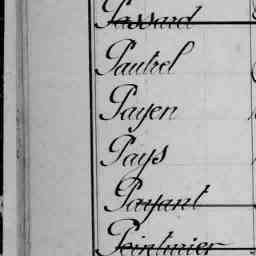 Passard
Pautrel
Payen
Pays
Payant
Peinturier